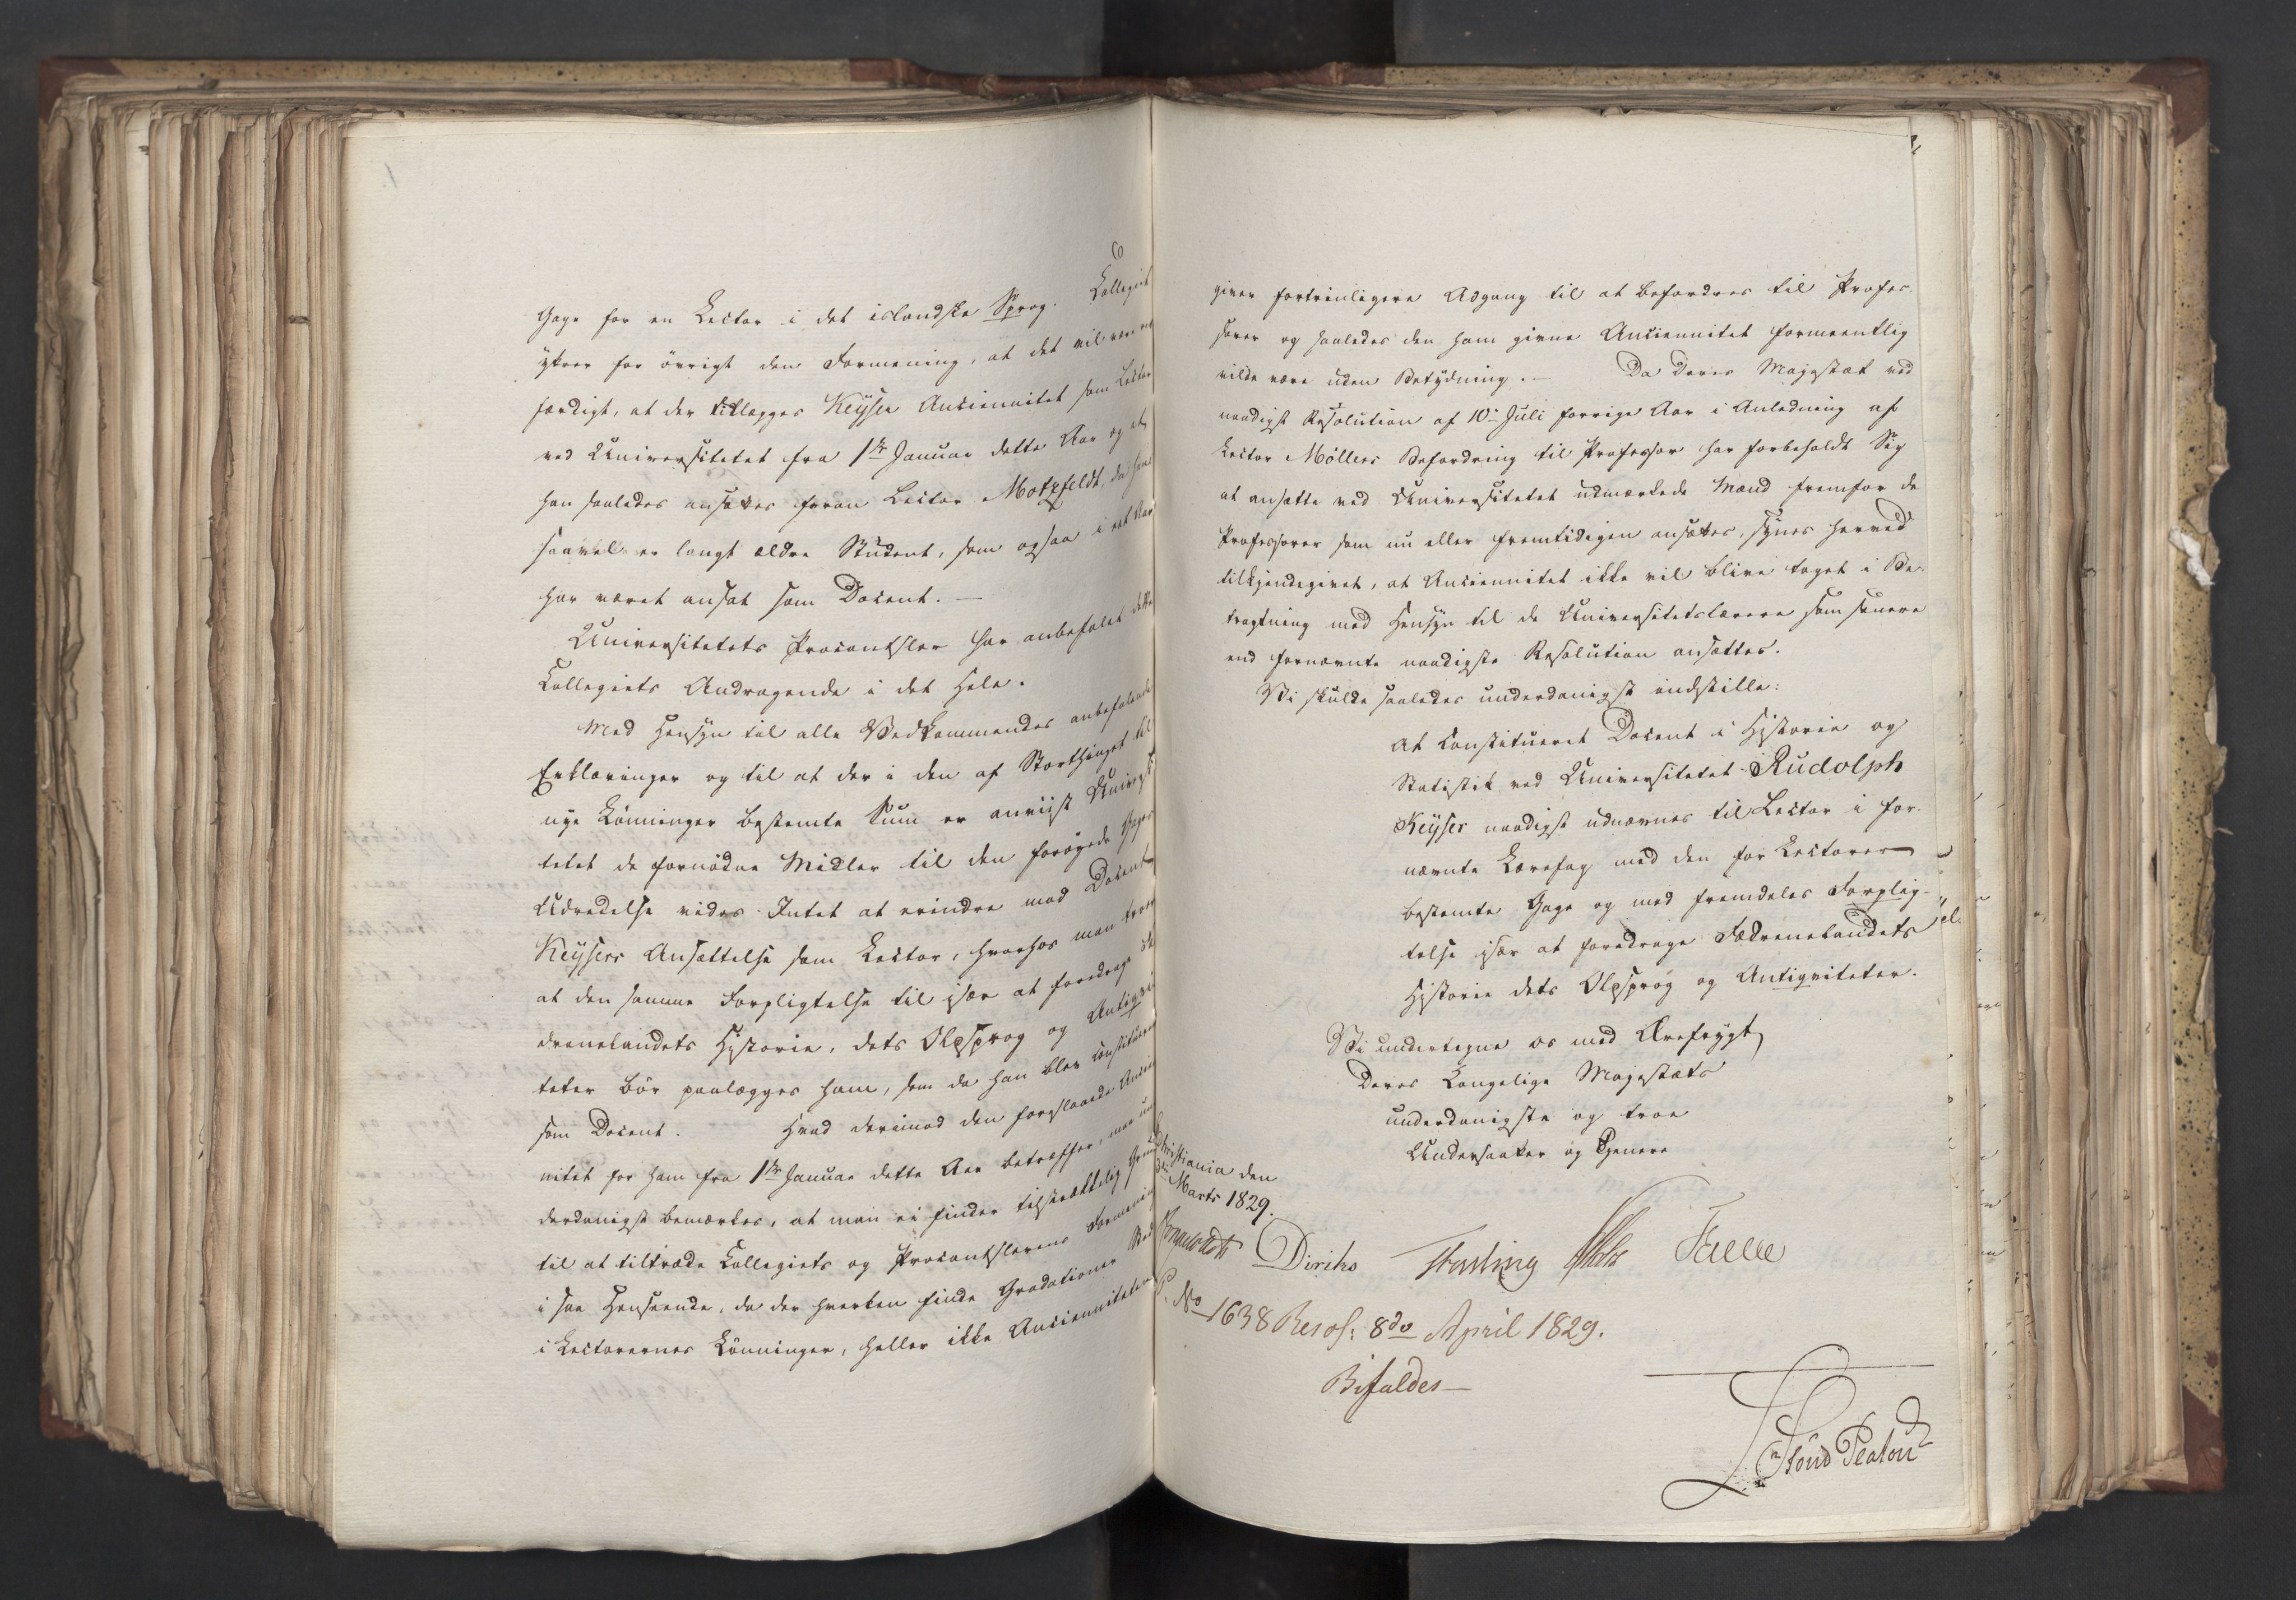 Gage for en Lector i det islandske Sprog. Collegiet
yttrer for övrigt den Formening, at det vil være
færdigt, at der tillægges Keyser Anciennitet som Lector
ved Universitetet fra 1ste Januar dette Aar og at
han saaledes ansættes foran Lector Motzfeldt, da han
saavel er langt ældre Student, som ogsaa i et Aar
har været ansat som Docent. —
Universitetets Procantsler har anbefalet dette
Collegiets Andragende i det Hele.
Med Hensyn til alle Vedkommendes anbefalende
Erklæringer og til at der i den af Storthinget til
nye Lönninger bestemte Sum er anviist Universi
tetet de fornödne Midler til den forögede Gages
Udredelse vides Intet at erindre mod Docent
Keysers Ansættelse som Lector, hvorhos man troer
at den samme Forpligtelse til især at foredrage
drenelandets Historie, dets Oldsprog og Antiqvi
teter bör paalægges ham, som da han blev constitueret
som Docent. Hvad derimod den foreslaaede Ancien
nitet for ham fra 1ste Januar dette Aar betræffer, maa un
derdanigst bemærkes, at man ei finder tilstrækkelig Grund
til at tiltræde Collegiets og Procantslerens Formening
i saa Henseende, da der hverken finde Gradationer Sted
i Lectorernes Lönninger, heller ikke Ancienniteten
giver fortrinligere Adgang til at befordres til Profes
sorer og saaledes den ham givne Anciennitet formeentlig
vilde være uden Betydning. — Da Deres Majestæt ved
naadigst Resolution af 10de Juli forrige Aar i Anledning af
Lector Möllers Befordring til Professor har forbeholdt Sig
at ansætte ved Universitetet udmærkede Mænd fremfor de
Professorer som nu eller fremtidigen ansættes, synes herved
tilkjendegivet, at Anciennitet ikke vil blive taget i Be-
tragtning med Hensyn til de Universitetslærere som senere
end fornævnte naadigste Resolution ansættes.
Vi skulde saaledes underdanigst indstille:
At constitueret Docent i Historie og
Statistik ved Universitetet Rudolph
Keyser naadigst udnævnes til Lector i for-
nævnte Lærefag med den for Lectorer
bestemte Gage og med fremdeles Forplig-
telse især at foredrage Fædrenelandets
Historie dets Oldsprog og Antiqviteter.
Vi undertegne os med Ærefrygt
Deres Kongelige Majestæts
underdanigste og troe
Undersaatter og Tjenere
Christiania den
Marts 1829.
Diriks Fasting Holst Falbe
No 1638 Resol: 8de April 1829.
Bifaldes —